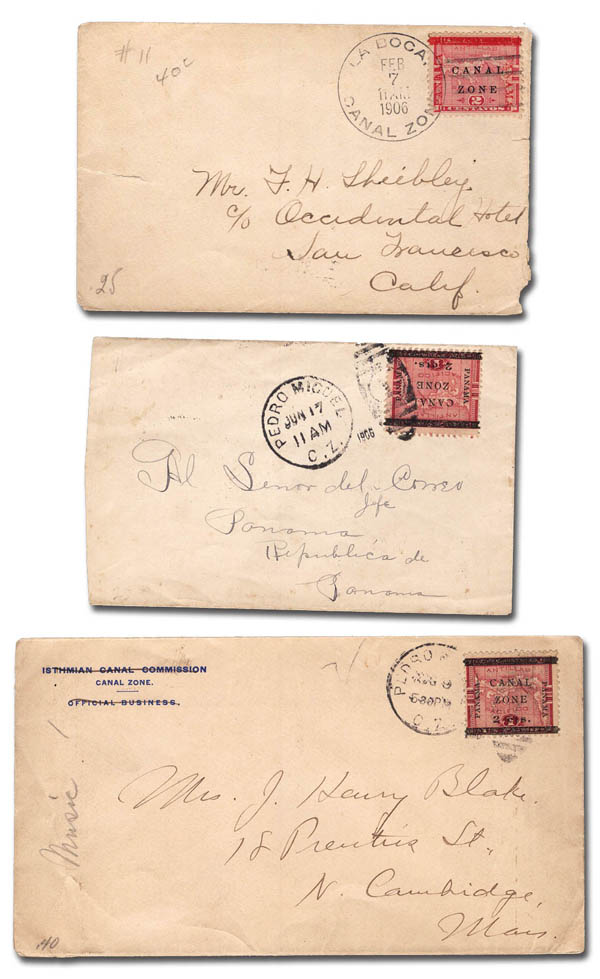 # 11
40¢
LA BOCA.
FEB
7
11 AM
1906
CANAL ZON
CANAL
ZONE
2
CENTAVOS
Mr. F. H. Sheibley
c/o Occidental Hotel
San Francisco
Calif.
.25
PEDRO MIGUEL
JUN 17
11 AM
C.Z.
1906
2 cts.
PANAMA
CANAL
ZONE
Al Señor del Correo
Jefe
Panama
Republica de
Panama
ISTHMIAN CANAL COMMISSION
CANAL ZONE.
OFFICIAL BUSINESS.
PEDRO
AUG 9
5-30PM
C.Z.
ANTILLAS
PANAMA
CANAL
ZONE
PACIFICO
2 cts.
PANAMA
Music
Mrs. J. Henry Blake.
18 Prentiss St.,
N. Cambridge,
Mass.
.40